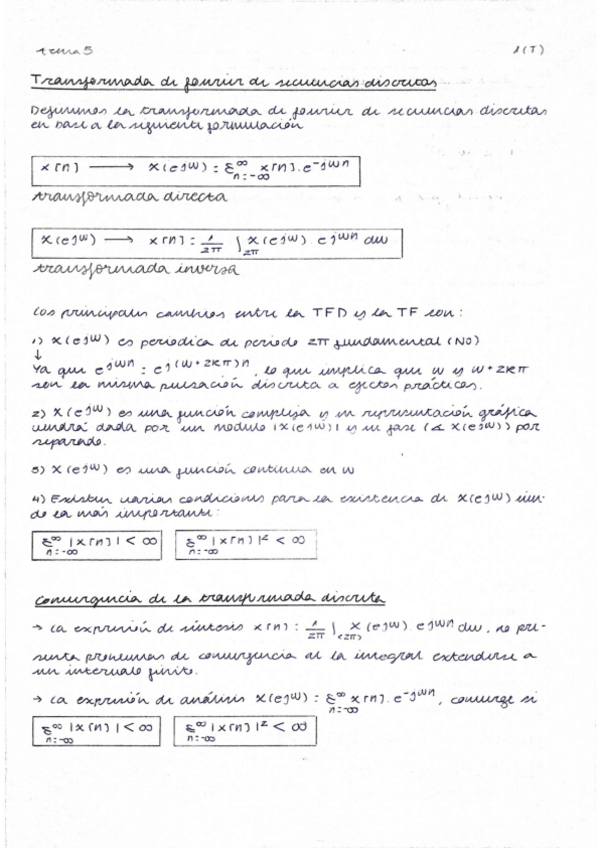 tema 5
1(T)
Transformada de fourier de secuencias discretas
Definimos la transformada de fourier de secuencias discretas
en base a la siguiente formulación
x[n] ⟶ X(e^jω) = Σ^∞_n=-∞ x[n]·e^-jωn
transformada directa
X(e^jω) ⟶ x[n] = 1/2π ∫_2π X(e^jω)·e^jωn dω
transformada inversa
Los principales cambios entre la TFD y la TF son:
1) X(e^jω) es periodica de periodo 2π fundamental (N0)
↓
Ya que e^jωn = e^j(ω+2kπ)n, lo que implica que ω y ω+2kπ
son la misma pulsación discreta a efectos prácticos.
2) X(e^jω) es una función compleja y su representación gráfica
vendrá dada por un modulo |X(e^jω)| y su fase (∢ X(e^jω)) por
separado.
3) X(e^jω) es una función continua en ω
4) Existen varias condiciones para la existencia de X(e^jω) sien-
do la más importante:
Σ^∞_n=-∞ |x[n]| < ∞ Σ^∞_n=-∞ |x[n]|² < ∞
Convergencia de la transformada discreta
→ La expresión de síntesis x[n] = 1/2π ∫_<2π> X(e^jω) e^jωn dω, no pre-
senta problemas de convergencia al la integral extenderse a
un intervalo finito.
→ La expresión de análisis X(e^jω) = Σ^∞_n=-∞ x[n]·e^-jωn, converge si
Σ^∞_n=-∞ |x[n]| < ∞ Σ^∞_n=-∞ |x[n]|² < ∞